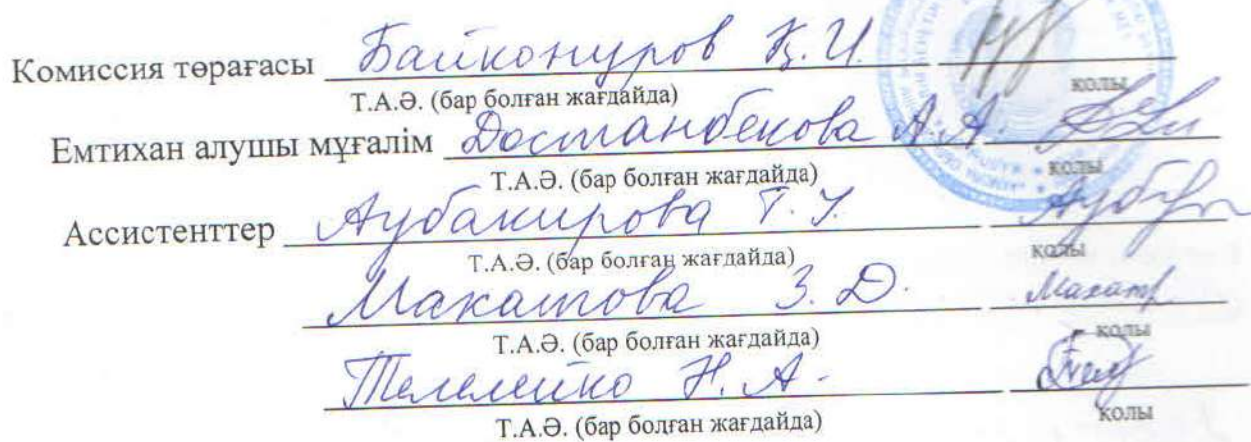 Комиссия төрағасы Байконуров Қ.И.
қолы
Т.А.Ә. (бар болған жағдайда)
Емтихан алушы мұғалім Достанбекова А.А.
Т.А.Ә. (бар болған жағдайда) қолы
Ассистенттер Аубакирова Т.У.
Т.А.Ә. (бар болған жағдайда) қолы
Макатова З.Д.
Т.А.Ә. (бар болған жағдайда) қолы
Н.А.
Т.А.Ә. (бар болған жағдайда) қолы